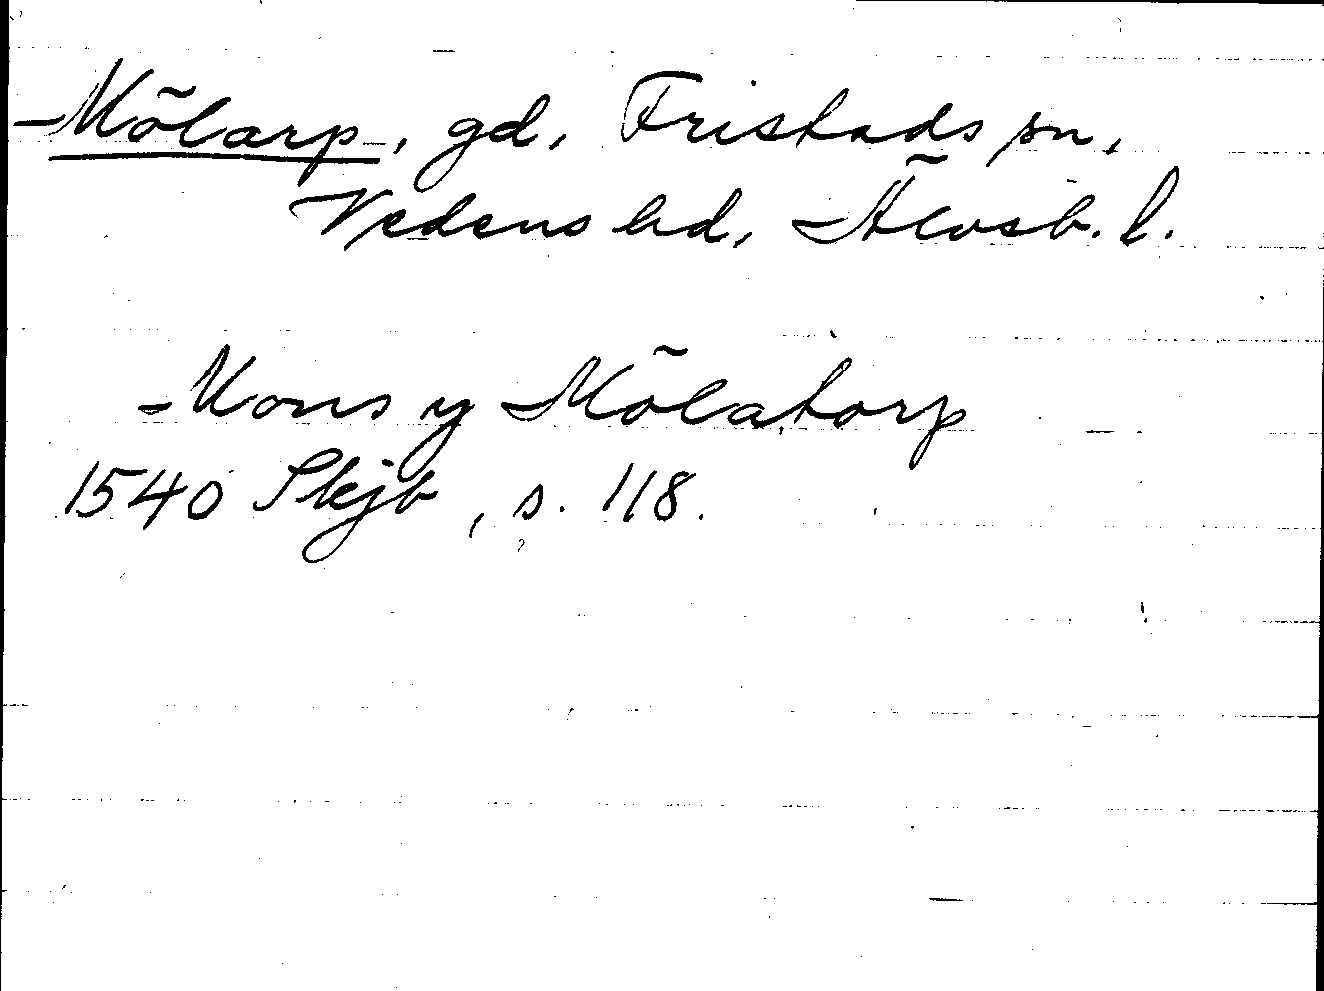 Mölarp, gd, Fristads sn,
Vedens hd, Älvsb. l.
Mons y Mölatorp
1540 Skjb, s. 118.